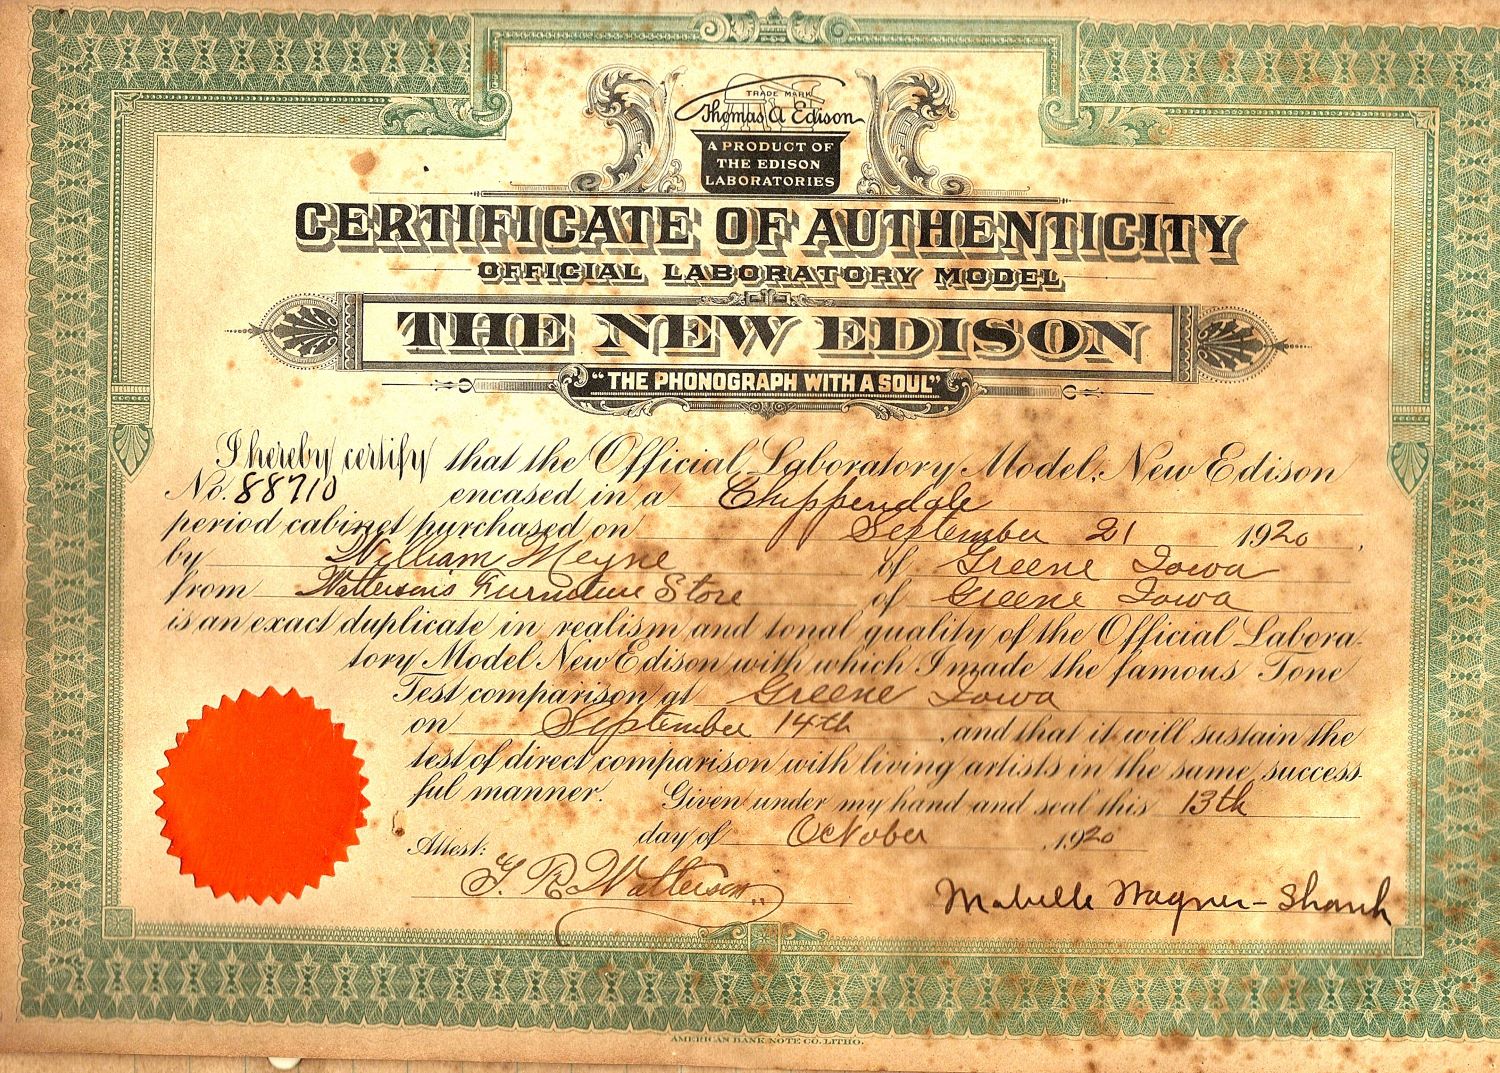 TRADE MARK
Thomas A Edison
A PRODUCT OF
THE EDISON
LABORATORIES
CERTIFICATE OF AUTHENTICITY
OFFICIAL LABORATORY MODEL
THE NEW EDISON
"THE PHONOGRAPH WITH A SOUL"
I hereby certify that the Official Laboratory Model, New Edison
No. 88710 encased in a Chippendale
period cabinet purchased on September 21 1920,
by William Meyne of Greene Iowa
from Watterson's Furniture Store of Greene Iowa
is an exact duplicate in realism and tonal quality of the Official Labora-
tory Model New Edison with which I made the famous Tone
Test comparison at Greene Iowa
on September 14th, and that it will sustain the
test of direct comparison with living artists in the same success-
ful manner. Given under my hand and seal this 13th
day of October, 1920
Attest:
Watterson
Mabelle Wagner-Shank
AMERICAN BANK NOTE CO. LITHO.